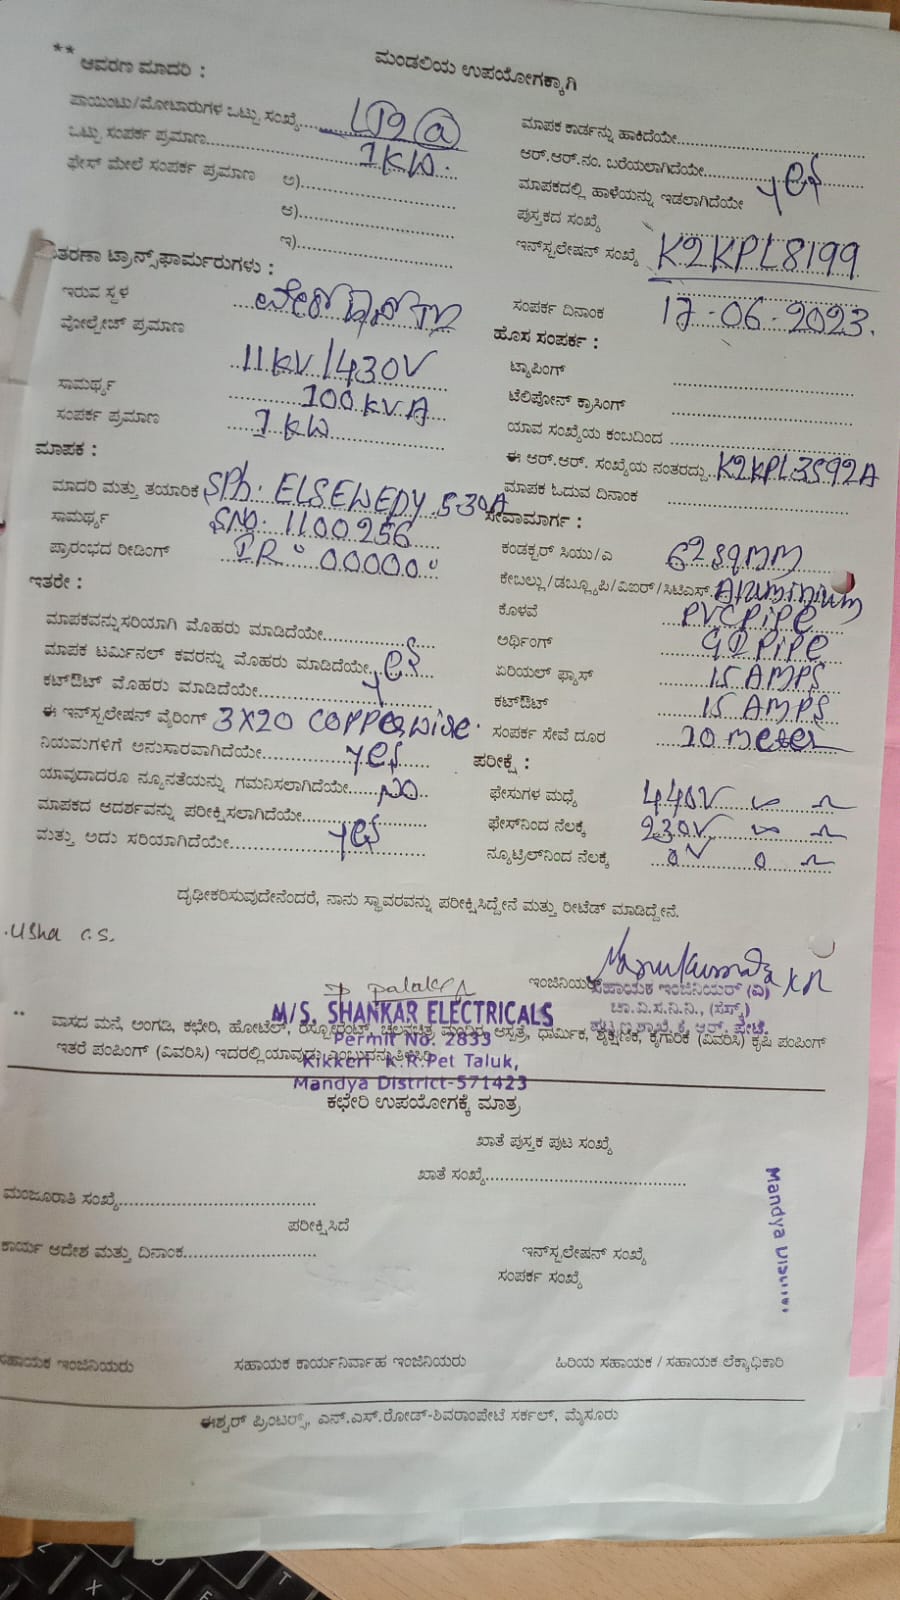 ಮಂಡಲಿಯ ಉಪಯೋಗಕ್ಕಾಗಿ
** ಆವರಣ ಮಾದರಿ :
ಪಾಯಿಂಟು/ಮೋಟಾರುಗಳ ಒಟ್ಟು ಸಂಖ್ಯೆ..... LT2 (a)
ಒಟ್ಟು ಸಂಪರ್ಕ ಪ್ರಮಾಣ..... 1KW.
ಫೇಸ್ ಮೇಲೆ ಸಂಪರ್ಕ ಪ್ರಮಾಣ ಅ).....
ಆ).....
ಇ).....
ತರಣಾ ಟ್ರಾನ್ಸ್‌ಫಾರ್ಮರುಗಳು :
ಇರುವ ಸ್ಥಳ
ವೋಲ್ಟೇಜ್ ಪ್ರಮಾಣ 11KV/430V
ಸಾಮರ್ಥ್ಯ 100KVA
ಸಂಪರ್ಕ ಪ್ರಮಾಣ 1KW
ಮಾಪಕ :
ಮಾದರಿ ಮತ್ತು ತಯಾರಿಕೆ SPh. ELSEWEDY 5-30A
ಸಾಮರ್ಥ್ಯ SNO. 1100256
ಪ್ರಾರಂಭದ ರೀಡಿಂಗ್ IR: 00000.
ಇತರೇ :
ಮಾಪಕವನ್ನು ಸರಿಯಾಗಿ ಮೊಹರು ಮಾಡಿದೆಯೇ.....
ಮಾಪಕ ಟರ್ಮಿನಲ್ ಕವರನ್ನು ಮೊಹರು ಮಾಡಿದೆಯೇ..... yes
ಕಟ್‌ಔಟ್ ಮೊಹರು ಮಾಡಿದೆಯೇ.....
ಈ ಇನ್‌ಸ್ಟಲೇಷನ್ ವೈರಿಂಗ್ 3X20 COPPERWIRE.
ನಿಯಮಗಳಿಗೆ ಅನುಸಾರವಾಗಿದೆಯೇ..... yes
ಯಾವುದಾದರೂ ನ್ಯೂನತೆಯನ್ನು ಗಮನಿಸಲಾಗಿದೆಯೇ..... NO
ಮಾಪಕದ ಆದರ್ಶವನ್ನು ಪರೀಕ್ಷಿಸಲಾಗಿದೆಯೇ.....
ಮತ್ತು ಅದು ಸರಿಯಾಗಿದೆಯೇ..... yes
ಮಾಪಕ ಕಾರ್ಡನ್ನು ಹಾಕಿದೆಯೇ.....
ಆರ್.ಆರ್.ನಂ. ಬರೆಯಲಾಗಿದೆಯೇ.....
ಮಾಪಕದಲ್ಲಿ ಹಾಳೆಯನ್ನು ಇಡಲಾಗಿದೆಯೇ yes
ಪುಸ್ತಕದ ಸಂಖ್ಯೆ
ಇನ್‌ಸ್ಟಲೇಷನ್ ಸಂಖ್ಯೆ K2KPL8199
ಸಂಪರ್ಕ ದಿನಾಂಕ 17-06-2023.
ಹೊಸ ಸಂಪರ್ಕ :
ಟ್ಯಾಪಿಂಗ್.....
ಟೆಲಿಪೋನ್ ಕ್ರಾಸಿಂಗ್.....
ಯಾವ ಸಂಖ್ಯೆಯ ಕಂಬದಿಂದ.....
ಈ ಆರ್.ಆರ್. ಸಂಖ್ಯೆಯ ನಂತರದ್ದು.. K2KPL3592A
ಮಾಪಕ ಓದುವ ದಿನಾಂಕ.....
ಸೇವಾಮಾರ್ಗ :
ಕಂಡಕ್ಟರ್ ಸಿಯು/ಎ 62sqmm
ಕೇಬಲ್ಲು/ಡಬ್ಲ್ಯೂಪಿ/ವಿಐಆರ್/ಸಿಟಿಎಸ್. Aluminium
ಕೊಳವೆ PVC PIPE
ಅರ್ಥಿಂಗ್ GI PIPE
ಏರಿಯಲ್ ಫ್ಯೂಸ್ 15 AMPS
ಕಟ್‌ಔಟ್ 15 AMPS
ಸಂಪರ್ಕ ಸೇವೆ ದೂರ 10 meter
ಪರೀಕ್ಷೆ :
ಫೇಸುಗಳ ಮಧ್ಯೆ 440V ∞ Ω
ಫೇಸ್‌ನಿಂದ ನೆಲಕ್ಕೆ 230V ∞ Ω
ನ್ಯೂಟ್ರಲ್‌ನಿಂದ ನೆಲಕ್ಕೆ 0V 0 Ω
ದೃಢೀಕರಿಸುವುದೇನೆಂದರೆ, ನಾನು ಸ್ಥಾವರವನ್ನು ಪರೀಕ್ಷಿಸಿದ್ದೇನೆ ಮತ್ತು ರೀಟೆಡ್ ಮಾಡಿದ್ದೇನೆ.
Usha C.S.
ಇಂಜಿನಿಯರ್
ಸಹಾಯಕ ಇಂಜಿನಿಯರ್ (ವಿ)
ಚಾ.ವಿ.ಸ.ನಿ.ನಿ.,
ಕೆ. ಆರ್. ಪೇಟೆ.
M/S. SHANKAR ELECTRICALS
Permit No. 2833
Kikkeri K.R.Pet Taluk,
Mandya District-571423
** ವಾಸದ ಮನೆ, ಅಂಗಡಿ, ಕಛೇರಿ, ಹೋಟೆಲ್, ರೆಸ್ಟೋರೆಂಟ್, ಚಲನಚಿತ್ರ ಮಂದಿರ, ಆಸ್ಪತ್ರೆ, ಧಾರ್ಮಿಕ, ಶೈಕ್ಷಣಿಕ, ಕೈಗಾರಿಕೆ (ವಿವರಿಸಿ) ಕೃಷಿ ಪಂಪಿಂಗ್
ಇತರೆ ಪಂಪಿಂಗ್ (ವಿವರಿಸಿ) ಇದರಲ್ಲಿ ಯಾವುದು ಎಂಬುದನ್ನು ತಿಳಿಸಿರಿ.
ಕಛೇರಿ ಉಪಯೋಗಕ್ಕೆ ಮಾತ್ರ
ಖಾತೆ ಪುಸ್ತಕ ಪುಟ ಸಂಖ್ಯೆ
ಖಾತೆ ಸಂಖ್ಯೆ.....
ಮಂಜೂರಾತಿ ಸಂಖ್ಯೆ.....
ಪರೀಕ್ಷಿಸಿದೆ
ಕಾರ್ಯ ಆದೇಶ ಮತ್ತು ದಿನಾಂಕ.....
ಇನ್‌ಸ್ಟಲೇಷನ್ ಸಂಖ್ಯೆ
ಸಂಪರ್ಕ ಸಂಖ್ಯೆ
Mandya
ಸಹಾಯಕ ಇಂಜಿನಿಯರು
ಸಹಾಯಕ ಕಾರ್ಯನಿರ್ವಾಹ ಇಂಜಿನಿಯರು
ಹಿರಿಯ ಸಹಾಯಕ / ಸಹಾಯಕ ಲೆಕ್ಕಾಧಿಕಾರಿ
ಈಶ್ವರ್ ಪ್ರಿಂಟರ್ಸ್, ಎನ್.ಎಸ್.ರೋಡ್-ಶಿವರಾಂಪೇಟೆ ಸರ್ಕಲ್, ಮೈಸೂರು